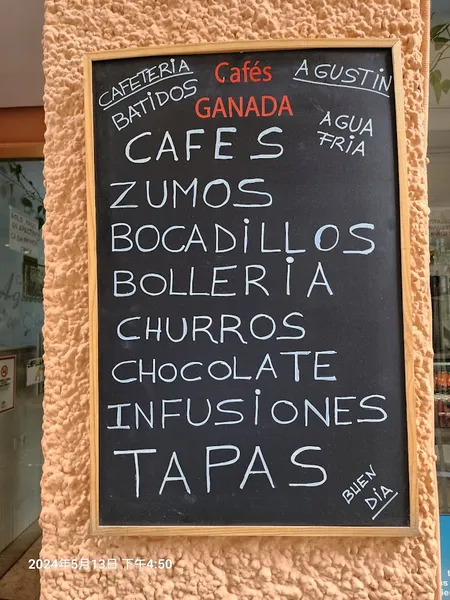 CAFETERIA
BATIDOS
Cafés
GANADA
AGUSTIN
AGUA
FRIA
CAFES
ZUMOS
BOCADiLLOS
BOLLERiA
CHURROS
CHOCOLATE
INFUSiONES
TAPAS
BUEN
DiA
2024年5月13日 下午4:50